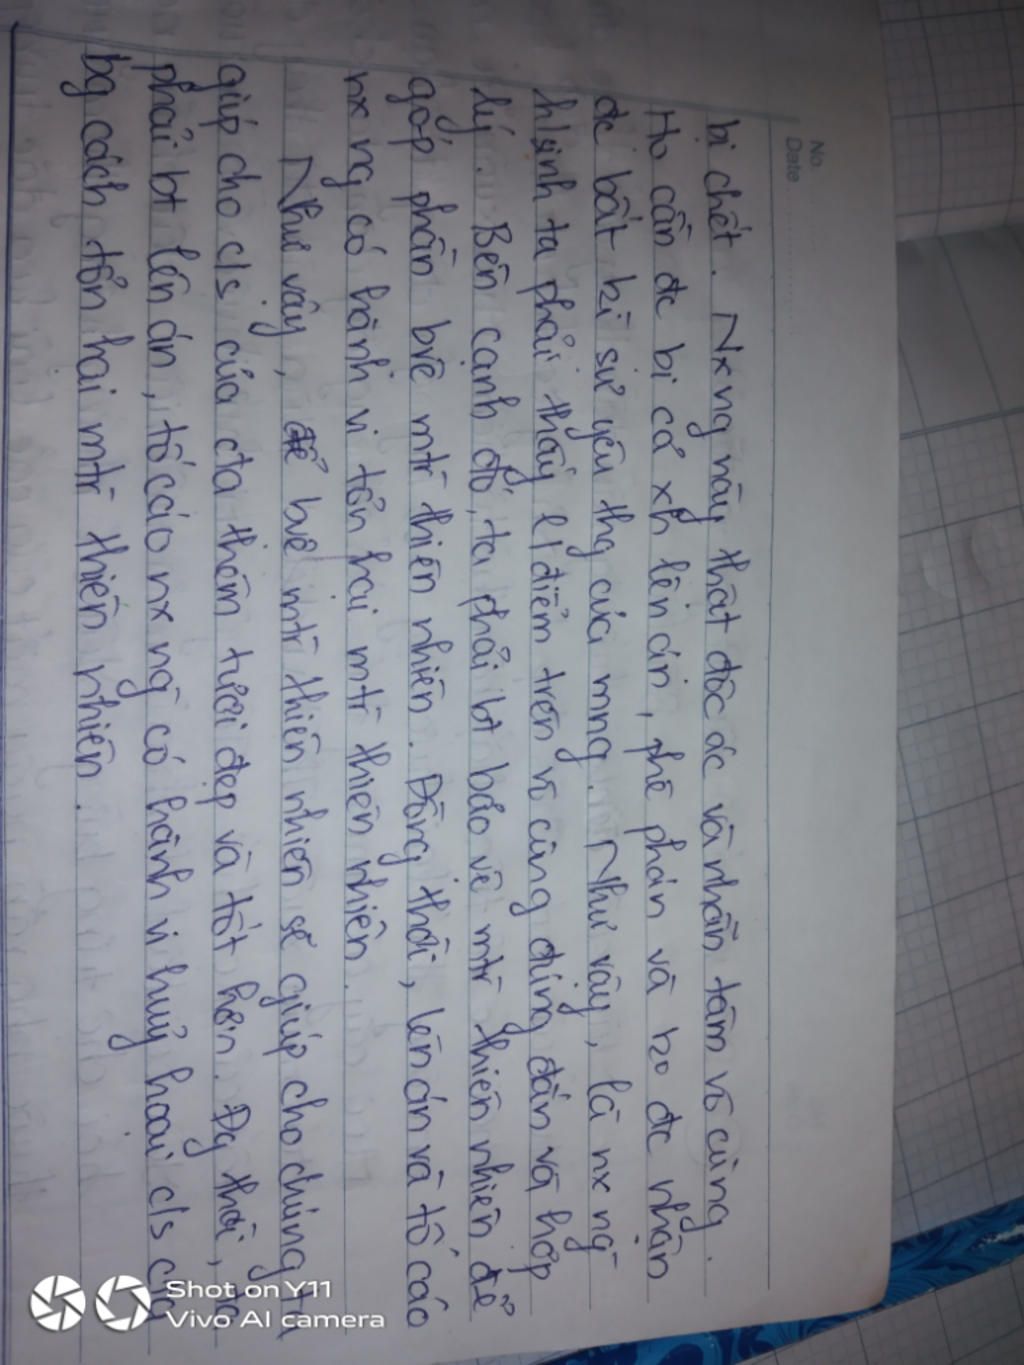 No.
Date
bị chết. Nx ng này thật độc ác và nhẫn tâm vô cùng.
Họ cần đc bị cả xh lên án, phê phán và ko đc nhận
đc bất kì sự yêu thg của mng. Như vậy, là nx ng
h/sinh ta phải thấy l/điểm trên vô cùng đúng đắn và hợp
lý. Bên cạnh đó, ta phải bt bảo vệ mtr thiên nhiên để
góp phần bvê mtr thiên nhiên. Đồng thời, lên án và tố cáo
nx ng có hành vi tổn hại mtr thiên nhiên.
Như vậy, để bvê mtr thiên nhiên sẽ giúp cho chúng ta
giúp cho c/s của cta thêm tươi đẹp và tốt hơn. Đg thời, ta
phải bt lên án, tố cáo nx ng có hành vi huỷ hoại c/s của
bg cách tổn hại mtr thiên nhiên.
Shot on Y11
Vivo AI camera